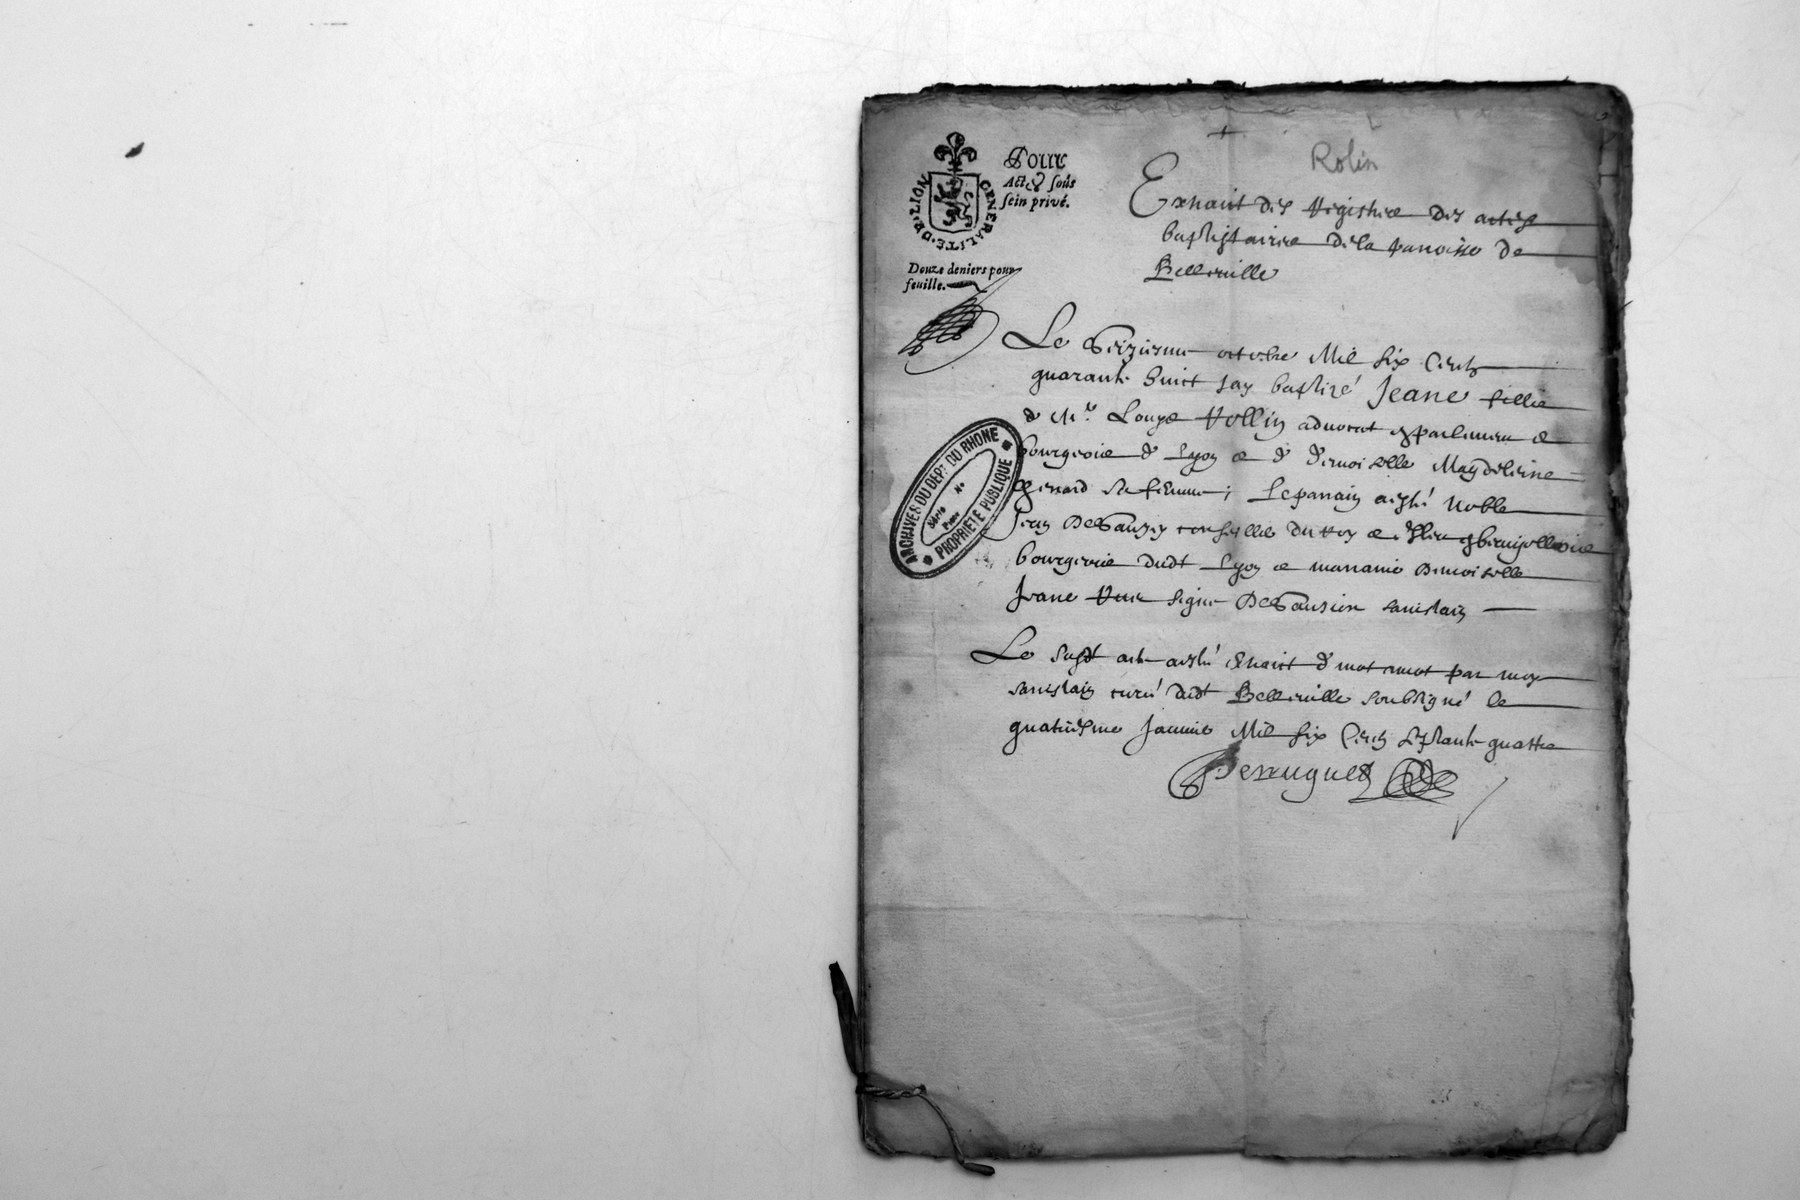 Rolin
GENERALITE·DE·LION
Pour
Actes sous
sein privé.
Douze deniers pour
feuille.
Extraict des Registre des actes
baptistairre de la paroisse de
Belleville
Le seiziesme octobre Mil six Cents
quarante huict Jay baptizé Jeane fillie
de Mr. Louys Rollin advocat en parlement &
bourgeois de Lyon & de demoiselle Magdeleine
sa femme; Le parrain a esté Noble
Jean conseiller du roy &
bourgeois dudt Lyon & marraine Demoiselle
Jeane signé
Le susdt acte a esté extraict de mot amot par moy
curé dudt Belleville soubsigné le
quatriesme Janvier Mil six Cents septante quattre
ARCHIVES DU DEPt. DU RHONE
Série No
Pièce
PROPRIÉTÉ PUBLIQUE